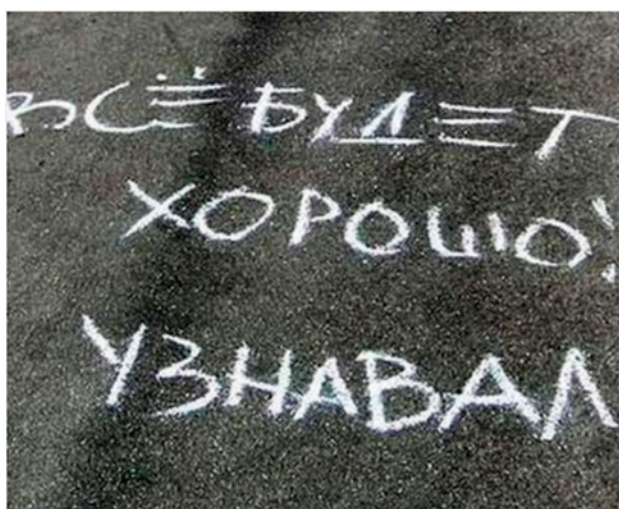 ВСЁ БУДЕТ
ХОРОШО!
УЗНАВАЛ